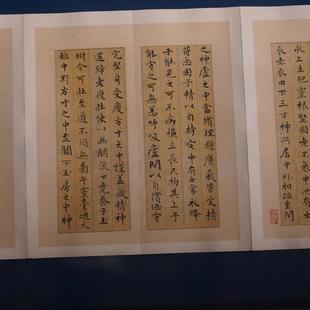 水上生肥靈根堅固老不衰中池有士
衣赤衣田下三寸神所居中外相距重閉
之神廬之中當脩理懸膺氣管受精
符急固子精以自持宅中有士常衣絳
子能見之可不病橫立長尺約其上子
能守之可無恙呼吸廬間以自償保守
完堅身受慶方寸之中謹蓋藏精神
還歸老復壯俠以幽闕流下竟養子玉
樹令可壯至道不煩無旁午靈臺通天
臨中野方寸之中至關下玉房之中神